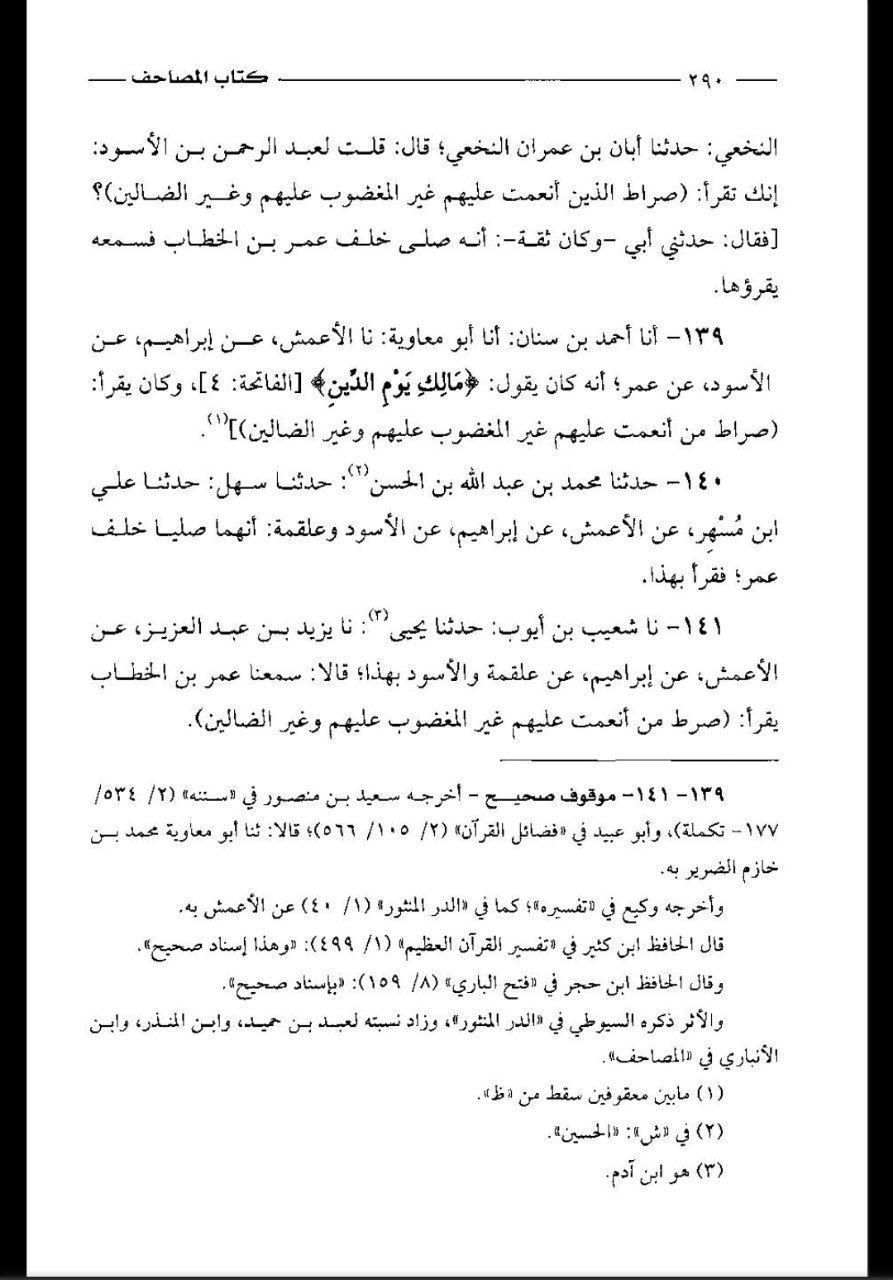 ٢٩٠ كتاب المصاحف
النخعي: حدثنا أبان بن عمران النخعي؛ قال: قلت لعبد الرحمن بن الأسود:
إنك تقرأ: (صراط الذين أنعمت عليهم غير المغضوب عليهم وغير الضالين)؟
[فقال: حدثني أبي -وكان ثقة-: أنه صلى خلف عمر بن الخطاب فسمعه
يقرؤها.
١٣٩- أنا أحمد بن سنان: أنا أبو معاوية: نا الأعمش، عن إبراهيم، عن
الأسود، عن عمر؛ أنه كان يقول: ﴿مَالِكِ يَوْمِ الدِّينِ﴾ [الفاتحة: ٤]، وكان يقرأ:
(صراط من أنعمت عليهم غير المغضوب عليهم وغير الضالين)](١).
١٤٠- حدثنا محمد بن عبد الله بن الحسن(٢): حدثنا سهل: حدثنا علي
ابن مُسْهِر، عن الأعمش، عن إبراهيم، عن الأسود وعلقمة: أنهما صليا خلف
عمر؛ فقرأ بهذا.
١٤١- نا شعيب بن أيوب: حدثنا يحيى(٣): نا يزيد بن عبد العزيز، عن
الأعمش، عن إبراهيم، عن علقمة والأسود بهذا؛ قالا: سمعنا عمر بن الخطاب
يقرأ: (صرط من أنعمت عليهم غير المغضوب عليهم وغير الضالين).
١٣٩- ١٤١- موقوف صحيح - أخرجه سعيد بن منصور في «سننه» (٢/ ٥٣٤/
١٧٧- تكملة)، وأبو عبيد في «فضائل القرآن» (٢/ ١٠٥/ ٥٦٦)؛ قالا: ثنا أبو معاوية محمد بن
خازم الضرير به.
وأخرجه وكيع في «تفسيره»؛ كما في «الدر المنثور» (١/ ٤٠) عن الأعمش به.
قال الحافظ ابن كثير في «تفسير القرآن العظيم» (١/ ٤٩٩): «وهذا إسناد صحيح».
وقال الحافظ ابن حجر في «فتح الباري» (٨/ ١٥٩): «بإسناد صحيح».
والأثر ذكره السيوطي في «الدر المنثور»، وزاد نسبته لعبد بن حميد، وابن المنذر، وابن
الأنباري في «المصاحف».
(١) مابين معقوفين سقط من «ظ».
(٢) في «ش»: «الحسين».
(٣) هو ابن آدم.